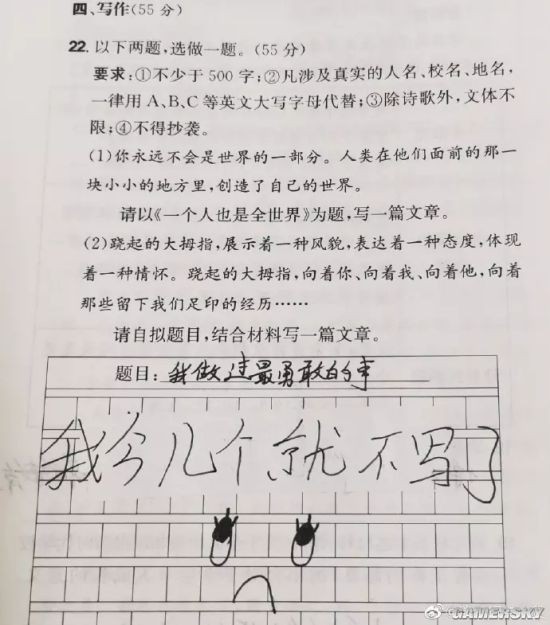 四、写作(55 分)
22. 以下两题,选做一题。(55 分)
要求:①不少于 500 字;②凡涉及真实的人名、校名、地名,
一律用 A、B、C 等英文大写字母代替;③除诗歌外,文体不
限;④不得抄袭。
(1)你永远不会是世界的一部分。人类在他们面前的那一
块小小的地方里,创造了自己的世界。
请以《一个人也是全世界》为题,写一篇文章。
(2)跷起的大拇指,展示着一种风貌,表达着一种态度,体现
着一种情怀。跷起的大拇指,向着你、向着我、向着他,向着
那些留下我们足印的经历……
请自拟题目,结合材料写一篇文章。
题目:我做过最勇敢的事
我今儿个就不写了
GAMERSKY